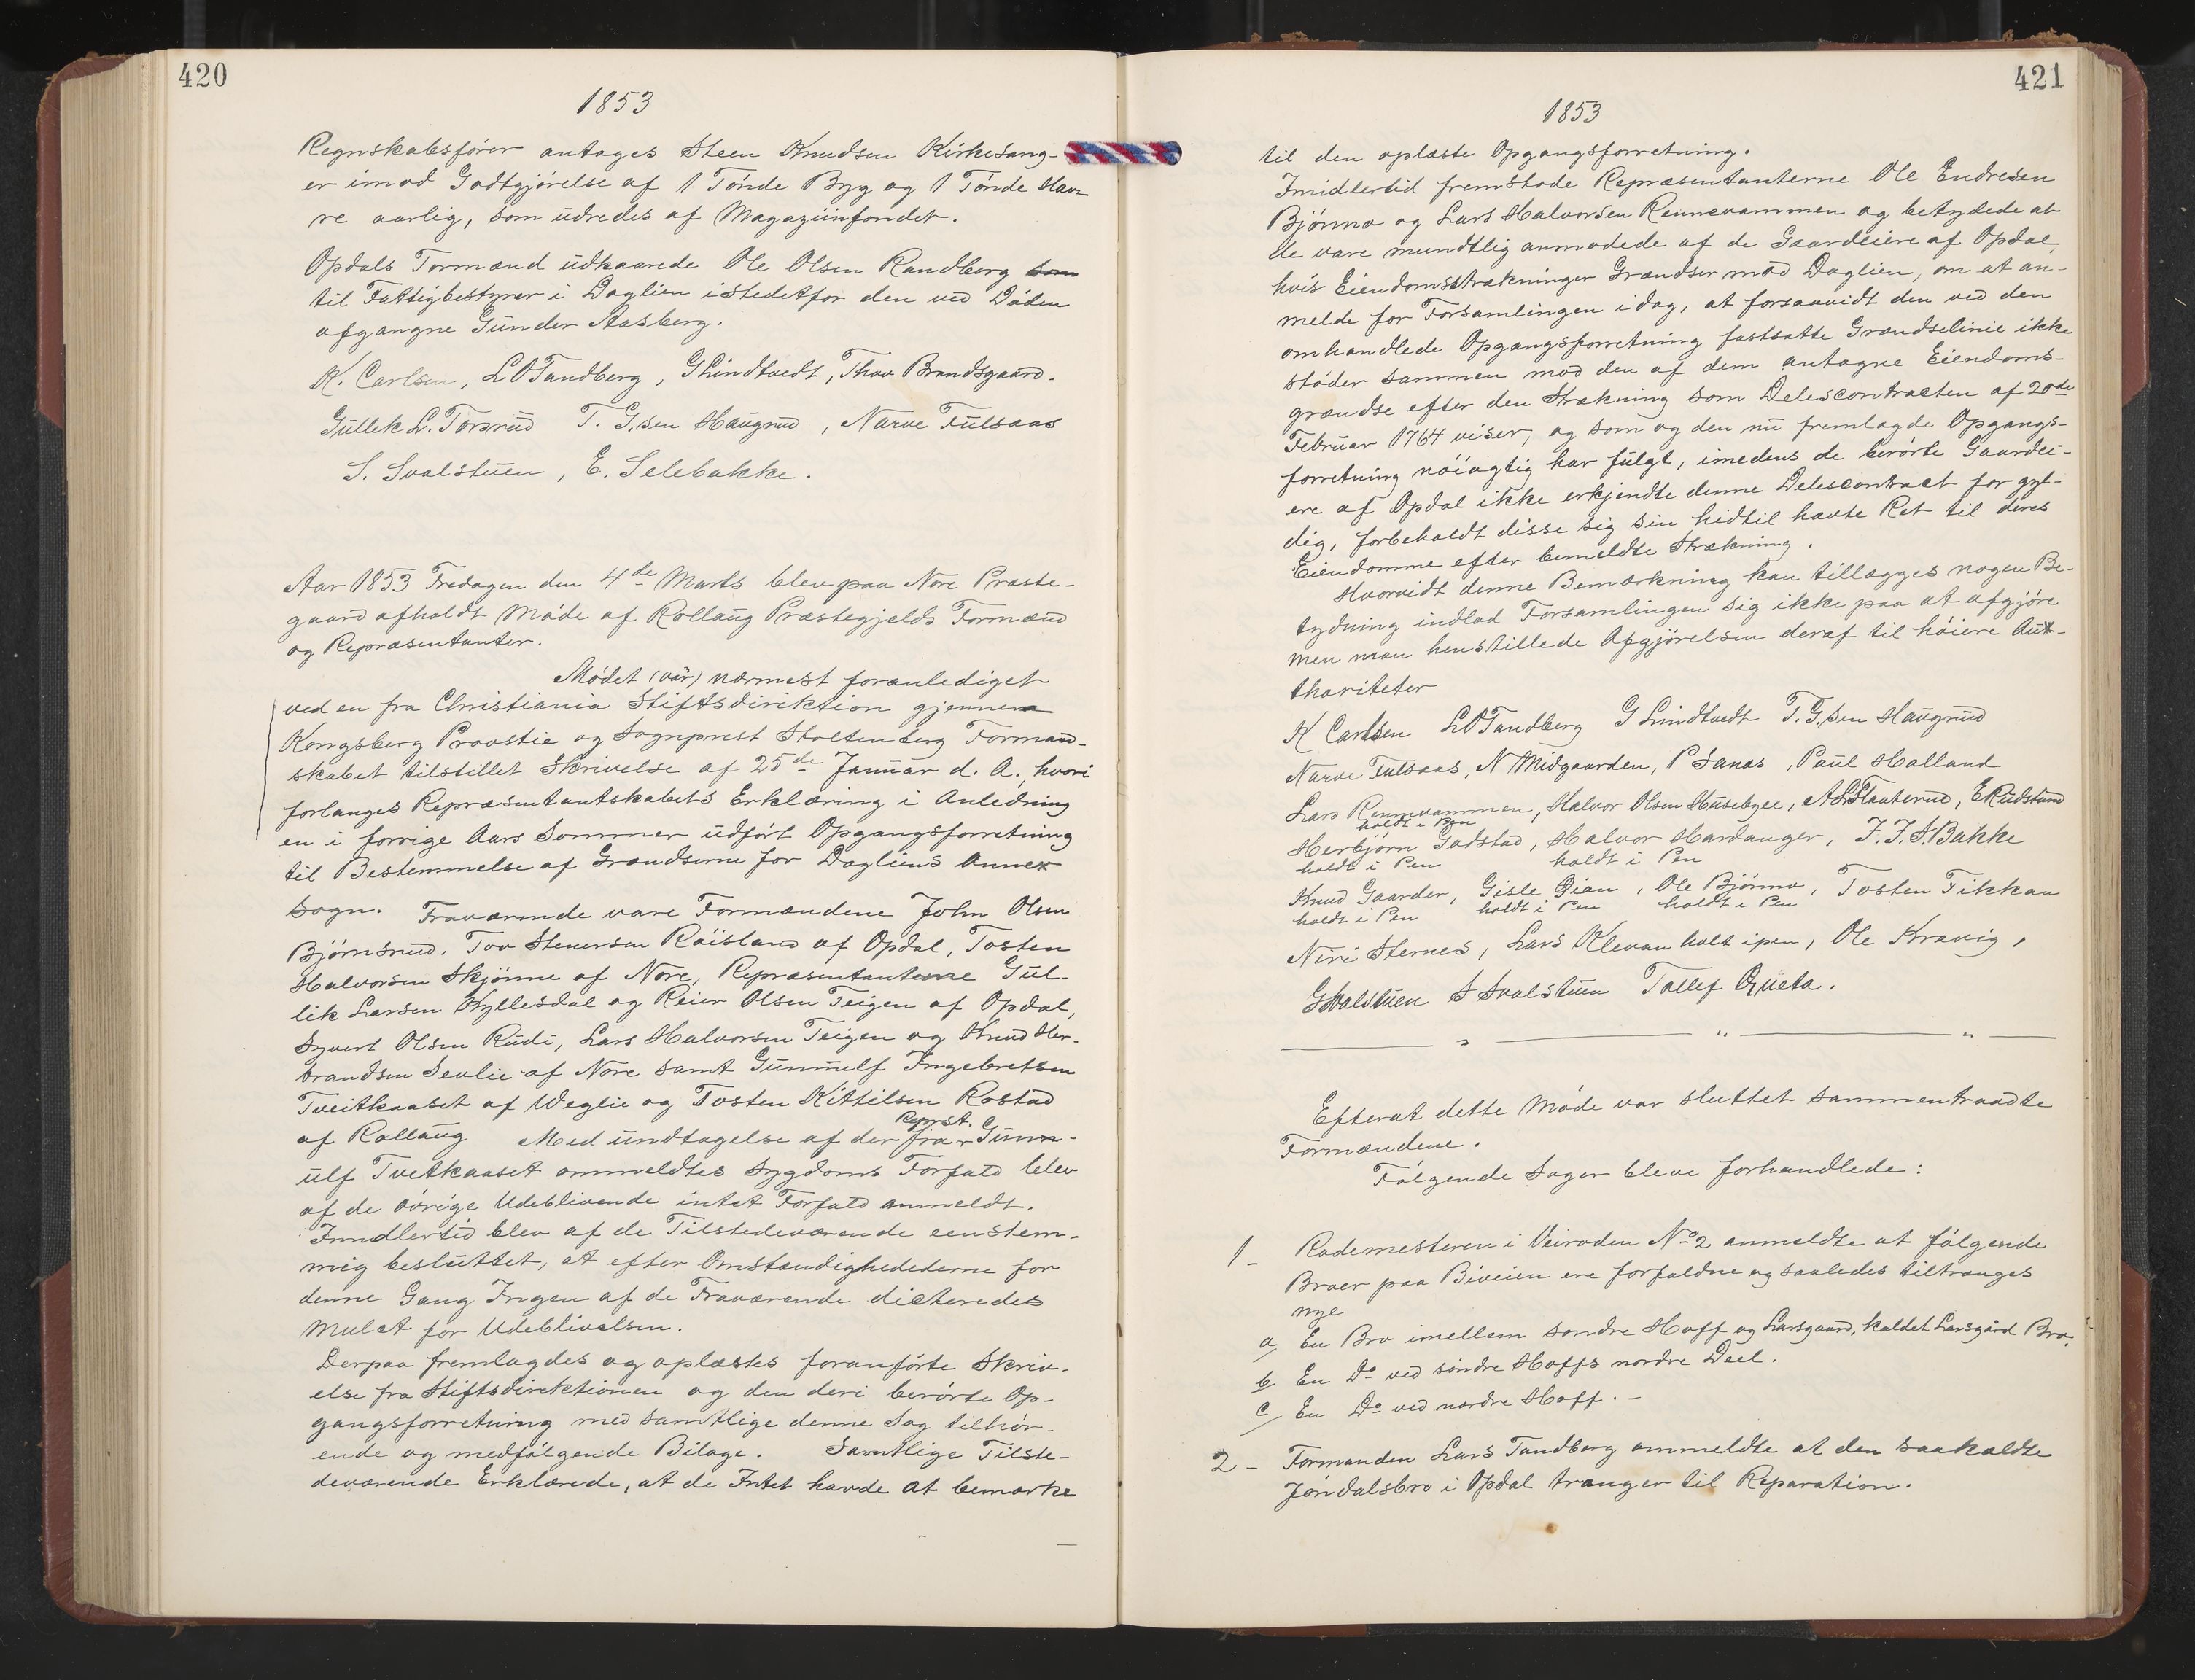 420
1853
Regnskabsfører antages Steen Knudsen Kirkesang-
er imod Godtgjørelse af 1 Tønde Byg og 1 Tønde Hav-
re aarlig, som udredes af Magaziinfondet.
Opdals Formænd udkaarede Ole Olsen Randberg som
til Fattigbestyrer i Daglien istedetfor den ved Døden
afgangne Gunder Aasberg.
K. Carlsen, L O Tandberg, G Lindtvedt, Thov Brandsgaard.
Gullek L. Torsrud T. G,sen Haugrud, Narve Fulsaas
S. Svalstuen, E. Selebakke.
Aar 1853 Fredagen den 4de Marts blev paa Nore Præste-
gaard afholdt Møde af Rollaug Præstegjelds Formænd
og Repræsentanter.
Mødet (var) nærmest foranlediget
ved en fra Christiania Stiftsdirektion gjennem
Kongsberg Provstie og Sognprest Stoltenberg Formand-
skabet tilstillet Skrivelse af 25de Januar d. A., hvori
forlanges Repræsentantskabets Erklæring i Anledning
en i forrige Aars Sommer udført Opgangsforretning
til Bestemmelse af Grændserne for Dagliens Annex
Sogn. Fraværende vare Formændene John Olsen
Bjørnsrud, Tov Stenersen Røisland af Opdal, Tosten
Halvorsen Skjønne af Nore, Repræsentanterne Gul-
lik Larsen Hyllesdal og Reier Olsen Teigen af Opdal,
Syvert Olsen Rudi, Lars Halvorsen Teigen og Knud Her-
brandsen Sevlie af Nore samt Gunnulf Ingebretsen
Tveitkaaset af Weglie og Tosten Kittilsen Rostad
af Rollaug Med undtagelse af den fra Reprst. Gunn-
ulf Tvetkaaset anmeldtes Sygdoms Forfald blev
af de øvrige Udeblivende intet Forfald anmeldt.
Imidlertid blev af de Tilstedeværende eenstem-
mig besluttet, at efter Omstændighedederne for
denne Gang Ingen af de Fraværende dicteredes
Mulct for Udeblivelsen.
Derpaa fremlagdes og oplæstes foranførte Skriv-
else fra Stiftsdirektionen og den deri berørte Op-
gangsforretning med samtlige denne Sag tilhør-
ende og medfølgende Bilage. Samtlige Tilste-
deværende Erklærede, at de Intet havde at bemærke
421
1853
til den oplæste Opgangsforretning.
Imidlertid fremstode Repræsentanterne Ole Endresen
Bjønno og Lars Halvorsen Rennevammen og betydede at
de vare mundtlig anmodede af de Gaardeiere af Opdal,
hvis Eiendomsstrækninger Grændser mod Daglien, om at an-
melde for Forsamlingen idag, at forsaavidt den ved den
omhandlede Opgangsforretning fastsatte Grændselinie ikke
støder sammen med den af dem antagne Eiendoms-
grændse efter den Strækning som Delescontracten af 20de
Februar 1764 viser, og som og den nu fremlagde Opgangs-
forretning nøiagtig har fulgt, imedens de berørte Gaardei-
ere af Opdal ikke erkjendte denne Delescontract for gyl-
dig, forbeholdt disse sig sin hidtil havte Ret til deres
Eiendomme efter bemeldte Strækning.
Hvorvidt denne Bemærkning kan tillægges nogen Be-
tydning indlod Forsamlingen sig ikke paa at afgjøre
men man henstillede Afgjørelsen deraf til høiere Aut-
thoriteter
K Carlsen L O Tandberg G Lindtvedt T. G,sen Haugrud
Narve Fulsaas, N Midgaarden, P Sanas, Paul Halland
Lars Rennevammen, Halvor Olsen Husebyee, A L Flaaterud, E Rudstund
holdt i Pen
Herbjørn Gadstad, Halvor Hardanger, F. F. S. Bakke
holdt i Pen holdt i Pen
Knud Gaarder, Gisle Qian, Ole Bjønno, Tosten Fikkan
holdt i Pen holdt i Pen holdt i Pen
Niri Sternes, Lars Klevan holt ipen, Ole Kravig,
G Svalstuen S Svalstuen Tollef Qveta.
Efterat dette Møde var sluttet sammentraadte
Formændene.
Følgende Sager bleve forhandlede:
1 - Rodemesteren i Veiroden No 2 anmeldte at følgende
Broer paa Biveien ere forfaldne og saaledes tiltrænges
nye
a, En Bro imellem søndre Hoff og Larsgaard, kaldet Larsgård Bro.
b, En Do ved søndre Hoffs nordre Deel.
c, En Do ved nordre Hoff. -
2 - Formanden Lars Tandberg anmeldte at den saakaldte
Jøndalsbro i Opdal trænger til Reparation.